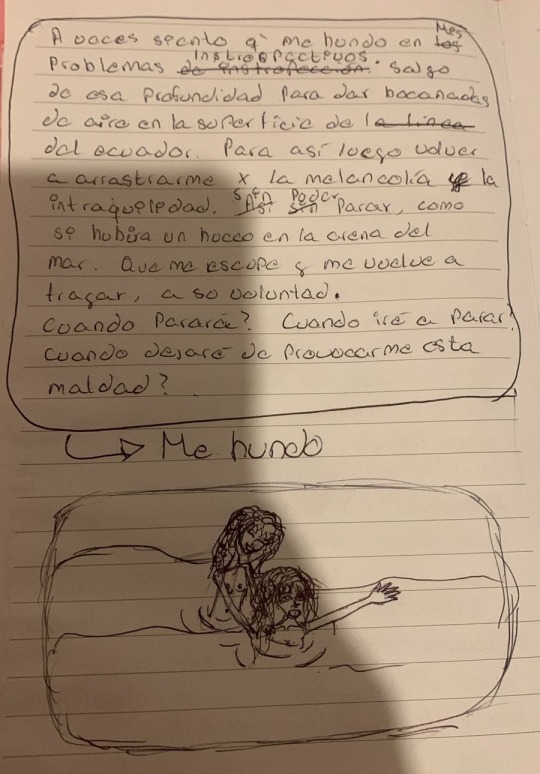 A veces siento q' me hundo en mis
Problemas instrospectivos. Salgo
de esa profundidad Para dar bocanadas
de aire en la superficie de la linea
del ecuador. Para así luego volver
a arrastrarme x la melancolía y la
intraquilidad. Sin Poder Parar, como
si hubira un hueco en la arena del
mar. Que me escupe y me vuelve a
tragar, a so voluntad.
Cuando Parará? Cuando iré a Parar?
Cuando dejaré de Provocarme esta
maldad?
Me hundo